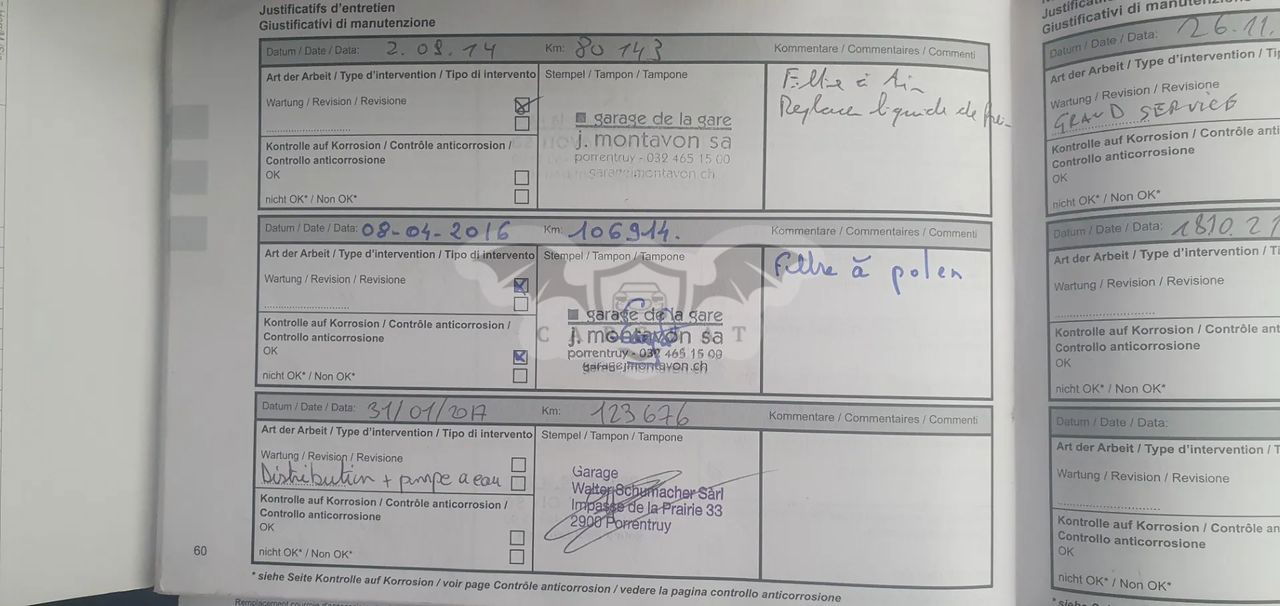 Justificatifs d'entretien
Giustificativi di manutenzione
Datum / Date / Data: 2.09.14 Km: 80 143 Kommentare / Commentaires / Commenti
Art der Arbeit / Type d'intervention / Tipo di intervento Stempel / Tampon / Tampone
Filtre à Air
Wartung / Revision / Revisione
Replace liquide de
garage de la gare
j. montavon sa
porrentruy - 032 465 15 00
garagejmontavon.ch
Kontrolle auf Korrosion / Contrôle anticorrosion /
Controllo anticorrosione
OK
nicht OK* / Non OK*
Datum / Date / Data: 08-04-2016 Km: 106914. Kommentare / Commentaires / Commenti
Art der Arbeit / Type d'intervention / Tipo di intervento Stempel / Tampon / Tampone
Filtre à polen
Wartung / Revision / Revisione
garage de la gare
j. montavon sa
porrentruy - 032 465 15 00
garagejmontavon.ch
Kontrolle auf Korrosion / Contrôle anticorrosion /
Controllo anticorrosione
OK
nicht OK* / Non OK*
Datum / Date / Data: 31/01/2017 Km: 123676 Kommentare / Commentaires / Commenti
Art der Arbeit / Type d'intervention / Tipo di intervento Stempel / Tampon / Tampone
Wartung / Revision / Revisione
Distribution + pompe a eau
Garage
Walter Schumacher Sàrl
Impasse de la Prairie 33
2900 Porrentruy
Kontrolle auf Korrosion / Contrôle anticorrosion /
Controllo anticorrosione
OK
nicht OK* / Non OK*
60
* siehe Seite Kontrolle auf Korrosion / voir page Contrôle anticorrosion / vedere la pagina controllo anticorrosione
Giustificativi di
Datum / Date / Data: 26.11.
Art der Arbeit / Type d'intervention
Wartung / Revision / Revisione
GRAND SERVICE
Kontrolle auf Korrosion / Contrôle
Controllo anticorrosione
OK
nicht OK* / Non OK*
Datum / Date / Data: 1810.21
Art der Arbeit / Type d'intervention
Wartung / Revision / Revisione
Kontrolle auf Korrosion / Contrôle
Controllo anticorrosione
OK
nicht OK* / Non OK*
Datum / Date / Data:
Art der Arbeit / Type d'intervention /
Wartung / Revision / Revisione
Kontrolle auf Korrosion / Contrôle
Controllo anticorrosione
OK
nicht OK* / Non OK*